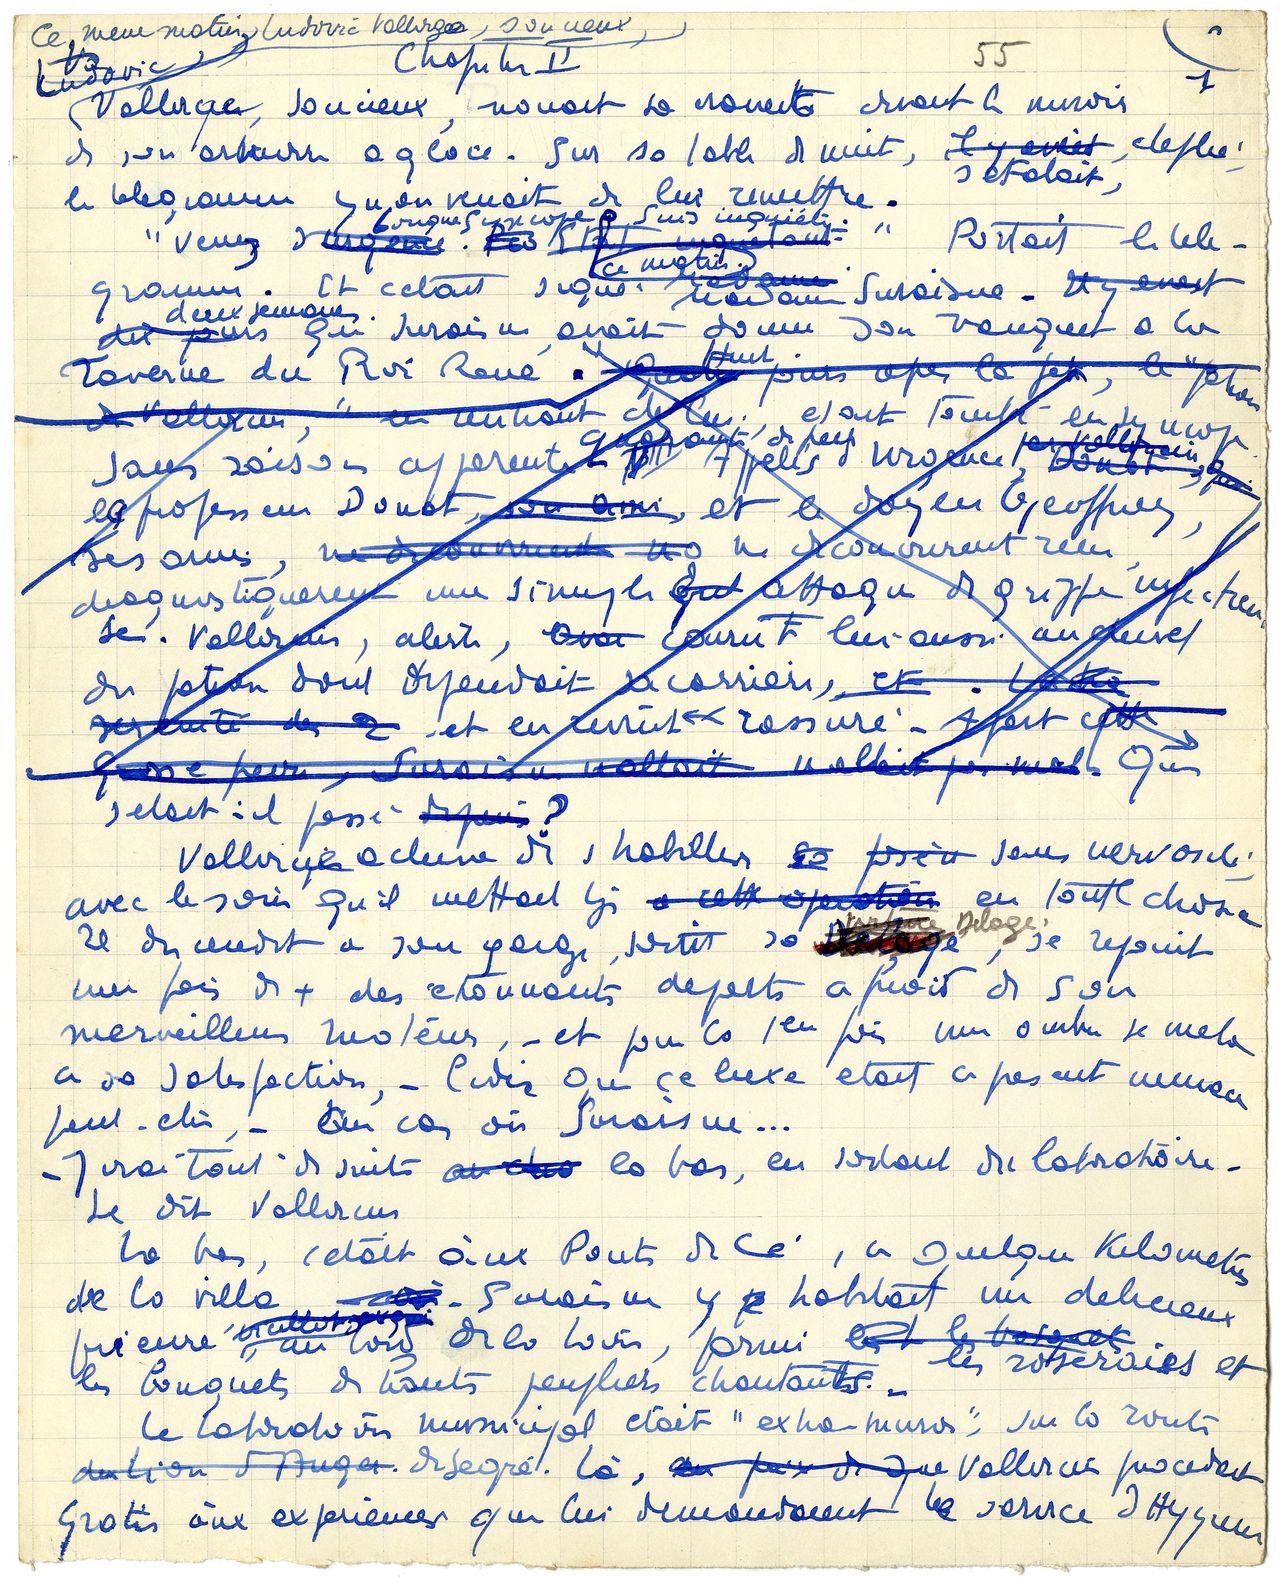 Ce même matin, Ludovic Vallorge, soucieux,
Chapitre II 55
Ludovic 1
Vallerge, soucieux, nouait sa cravate devant le miroir
de son armoire a glace. Sur sa table de nuit, il y avait, deplié,
s'etalait,
le telegramme qu'on venait de lui remettre.
longue syncope Suis inquiète.
"Venez d'urgence. Etat inquietant" Portait le tele-
ce matin
gramme. Et c'etait signé: Madame Suraisne. Il y avait
deux semaines
dix jours que Suraisne avait donné son banquet a la
Taverne du Roi René. Huit jours apres la fete, le "patron
de Vallorge," en rentrant chez lui, etait tombé en syncope
sans raison apparente. Appelés d'urgence, par Vallerge
le professeur Donat, son ami, et le doyen Geoffroy,
ses amis, ne decouvrirent rien,
diagnostiquerent une simple attaque de grippe infectieu
se. Vallorge, alerté, courut lui aussi au chevet
du patron dont dependait sa carriere, et
serenité des et en revint rassuré. Apart cette
grosse peur, Suraisne n'allait pas mal. Que
s'etait-il passé depuis?
Vallorge acheva de s'habiller sans nervosité,
avec le soin qu'il mettait a cette operation en toute chose
Il descendit a son garage, sortit sa Delage, se rejouit
une fois de + des etonnants departs a froid de son
merveilleux moteur, - et pour la 1ere fois une ombre se mela
a sa satisfaction, - l'idée que ce luxe etait a present menacé
peut-etre, - Au cas où Suraisne...
- J'irai tout de suite la bas, en sortant du laboratoire -
Se dit Vallorge
La bas, c'etait aux Ponts de Cé, a quelques Kilometres
de la villa. Suraisne y habitait un delicieux
prieuré, au bord de la Loire, parmi les roseraies et
les bouquets de hauts peupliers chantants. -
Le laboratoire municipal etait "extra-muros", sur la route
du Lion d'Angers. de Segré. Là, Vallorge procedait
gratis aux experiences que lui demandaient le service d'Hygiene